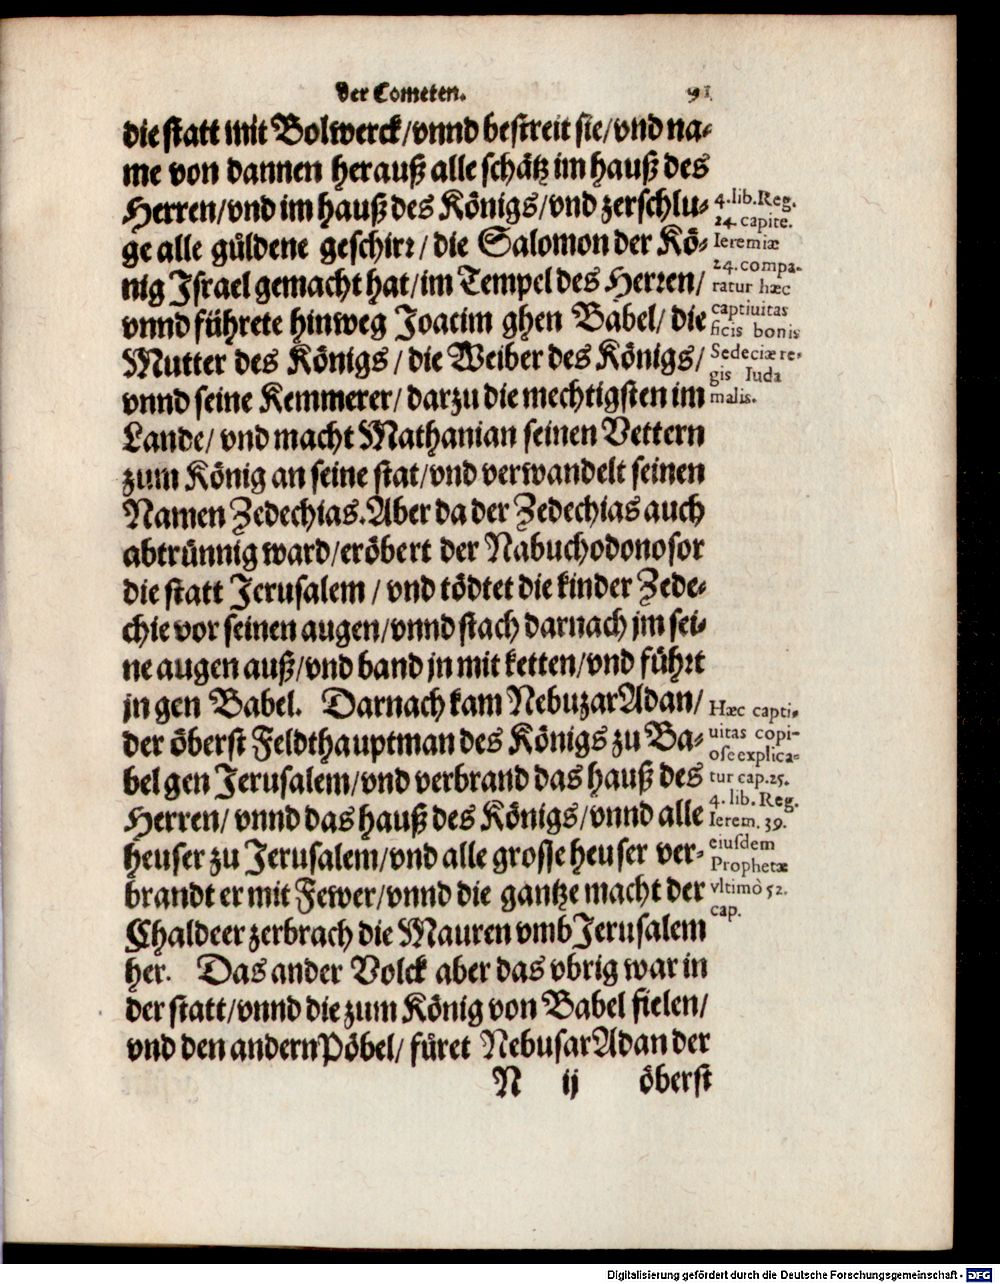 der Cometen. 91
die statt mit Bolwerck/vnnd bestreit sie/vnd na-
me von dannen herauß alle schätz im hauß des
Herren/vnd im hauß des Königs/vnd zerschlu-
ge alle güldene geschirr/die Salomon der Kö-
nig Israel gemacht hat/im Tempel des Herren/
vnnd führete hinweg Joacim ghen Babel/die
Mutter des Königs/die Weiber des Königs/
vnnd seine Kemmerer/darzu die mechtigsten im
Lande/vnd macht Mathanian seinen Vettern
zum König an seine stat/vnd verwandelt seinen
Namen Zedechias. Aber da der Zedechias auch
abtrünnig ward/eröbert der Nabuchodonosor
die statt Jerusalem/vnd tödtet die kinder Zede-
chie vor seinen augen/vnnd stach darnach jm sei-
ne augen auß/vnd band jn mit ketten/vnd führt
jn gen Babel. Darnach kam NebuzarAdan/
der öberst Feldthauptman des Königs zu Ba-
bel gen Jerusalem/vnd verbrand das hauß des
Herren/vnnd das hauß des Königs/vnnd alle
heuser zu Jerusalem/vnd alle grosse heuser ver-
brandt er mit Fewer/vnnd die gantze macht der
Chaldeer zerbrach die Mauren vmb Jerusalem
her. Das ander Volck aber das vbrig war in
der statt/vnnd die zum König von Babel fielen/
vnd den andern Pöbel/füret NebusarAdan der
N ij öberst
4. lib. Reg.
24. capite.
Ieremiæ
24. compa-
ratur hæc
captiuitas
ficis bonis
Sedeciæ re-
gis Iuda
malis.
Hæc capti-
uitas copi-
ose explica-
tur cap. 25.
4. lib. Reg.
Ierem. 39.
eiusdem
Prophetæ
vltimò 52.
cap.
Digitalisierung gefördert durch die Deutsche Forschungsgemeinschaft - DFG